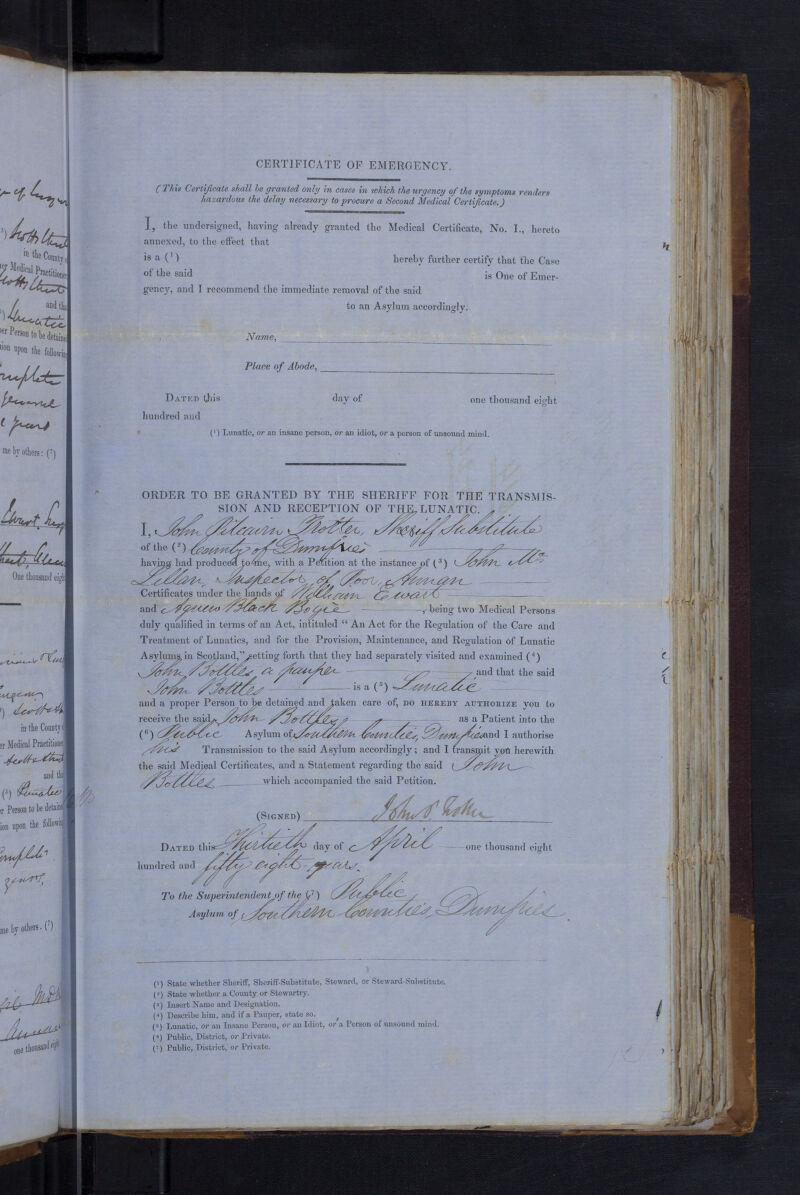 CERTIFICATE OF EMERGENCY.
(This Certificate shall be granted only in cases in which the urgency of the symptoms renders
hazardous the delay necessary to procure a Second Medical Certificate.)
I, the undersigned, having already granted the Medical Certificate, No. I., hereto
annexed, to the effect that
is a (¹) hereby further certify that the Case
of the said is One of Emer-
gency, and I recommend the immediate removal of the said
to an Asylum accordingly.
Name,
Place of Abode,
DATED this day of one thousand eight
hundred and
(¹) Lunatic, or an insane person, or an idiot, or a person of unsound mind.
ORDER TO BE GRANTED BY THE SHERIFF FOR THE TRANSMIS-
SION AND RECEPTION OF THE LUNATIC.
I, John Pitcairn Trotter, Sheriff Substitute
of the (²) County of Dumfries
having had produced to me, with a Petition at the instance of (³) John Mc
Lellan, Inspector of Poor, Annan
Certificates under the hands of William Ewart
and Agnew Black Bogie, being two Medical Persons
duly qualified in terms of an Act, intituled "An Act for the Regulation of the Care and
Treatment of Lunatics, and for the Provision, Maintenance, and Regulation of Lunatic
Asylums, in Scotland," setting forth that they had separately visited and examined (⁴)
John Bottles a pauper and that the said
John Bottles is a (⁵) Lunatic
and a proper Person to be detained and taken care of, DO HEREBY AUTHORIZE you to
receive the said John Bottles as a Patient into the
(⁶) Public Asylum of Southern Counties, Dumfries and I authorise
his Transmission to the said Asylum accordingly; and I transmit you herewith
the said Medical Certificates, and a Statement regarding the said John
Bottles which accompanied the said Petition.
(SIGNED) John P. Trotter
DATED this Thirtieth day of April one thousand eight
hundred and fifty eight years.
To the Superintendent of the (⁷) Public
Asylum of Southern Counties, Dumfries.
(¹) State whether Sheriff, Sheriff-Substitute, Steward, or Steward-Substitute.
(²) State whether a County or Stewartry.
(³) Insert Name and Designation.
(⁴) Describe him, and if a Pauper, state so.
(⁵) Lunatic, or an Insane Person, or an Idiot, or a Person of unsound mind.
(⁶) Public, District, or Private.
(⁷) Public, District, or Private.
in the County
Medical Practitioner
and the
Person to be detained
upon the following
me by others: (⁷)
One thousand eight
in the County
Medical Practitioner
and the
(⁵) Lunatic
Person to be detained
upon the following
me by others. (⁷)
one thousand eight